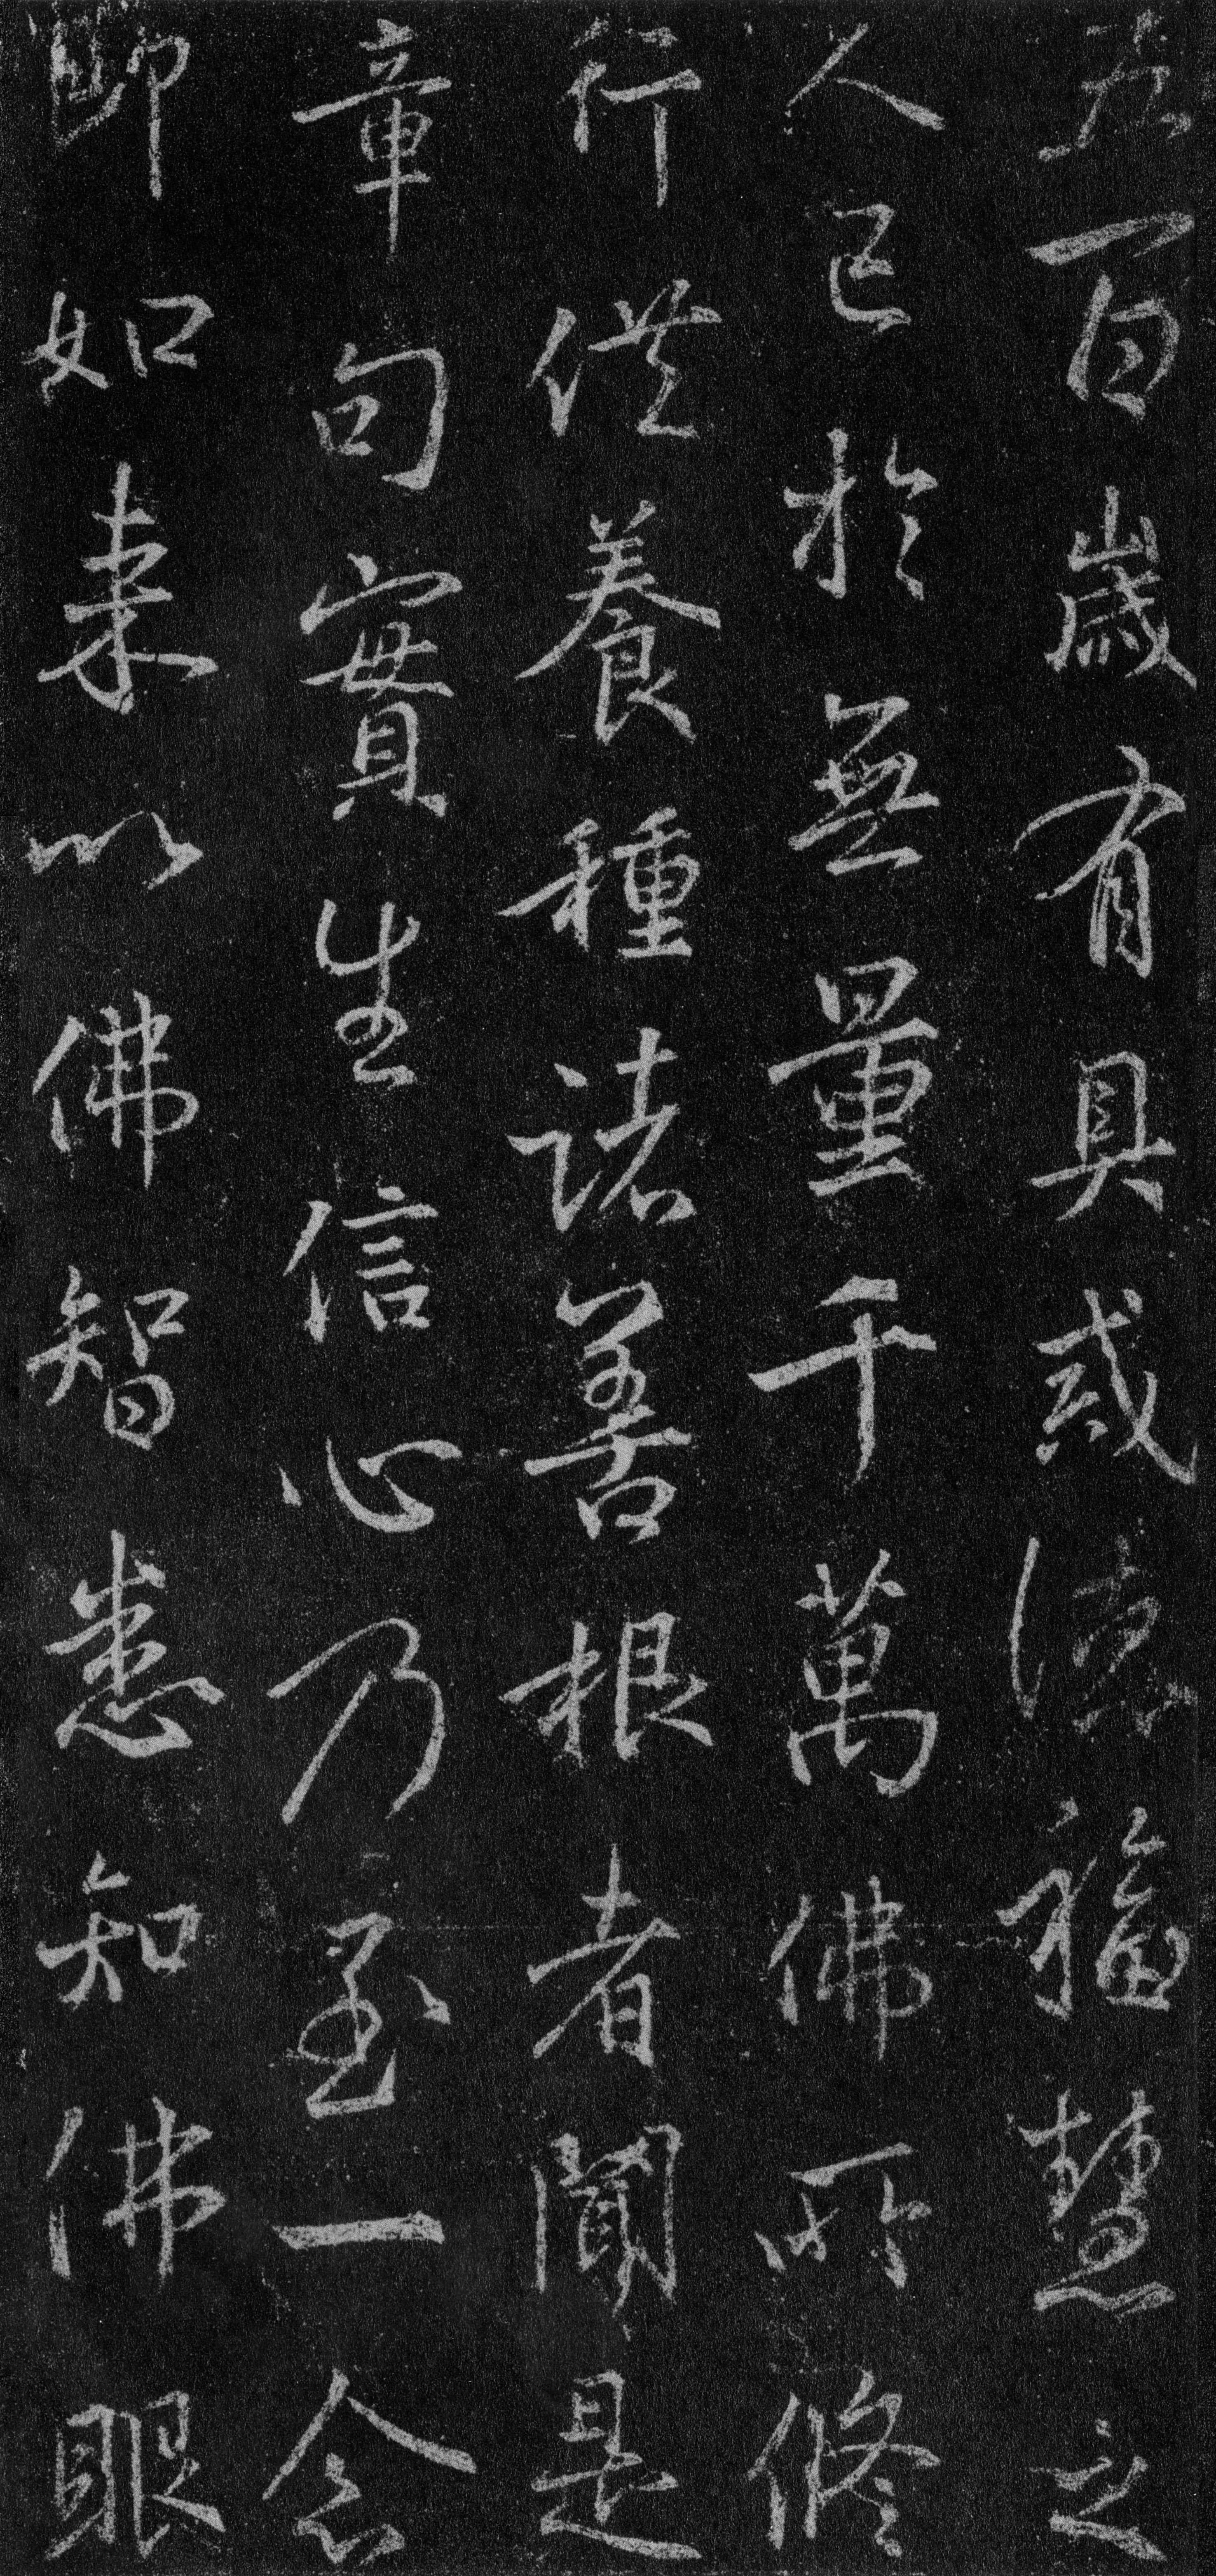 五百歲有具戒福慧之
人已於無量千萬佛所修
行供養種諸善根者聞是
章句實生信心乃至一念
即如來以佛智悉知佛眼